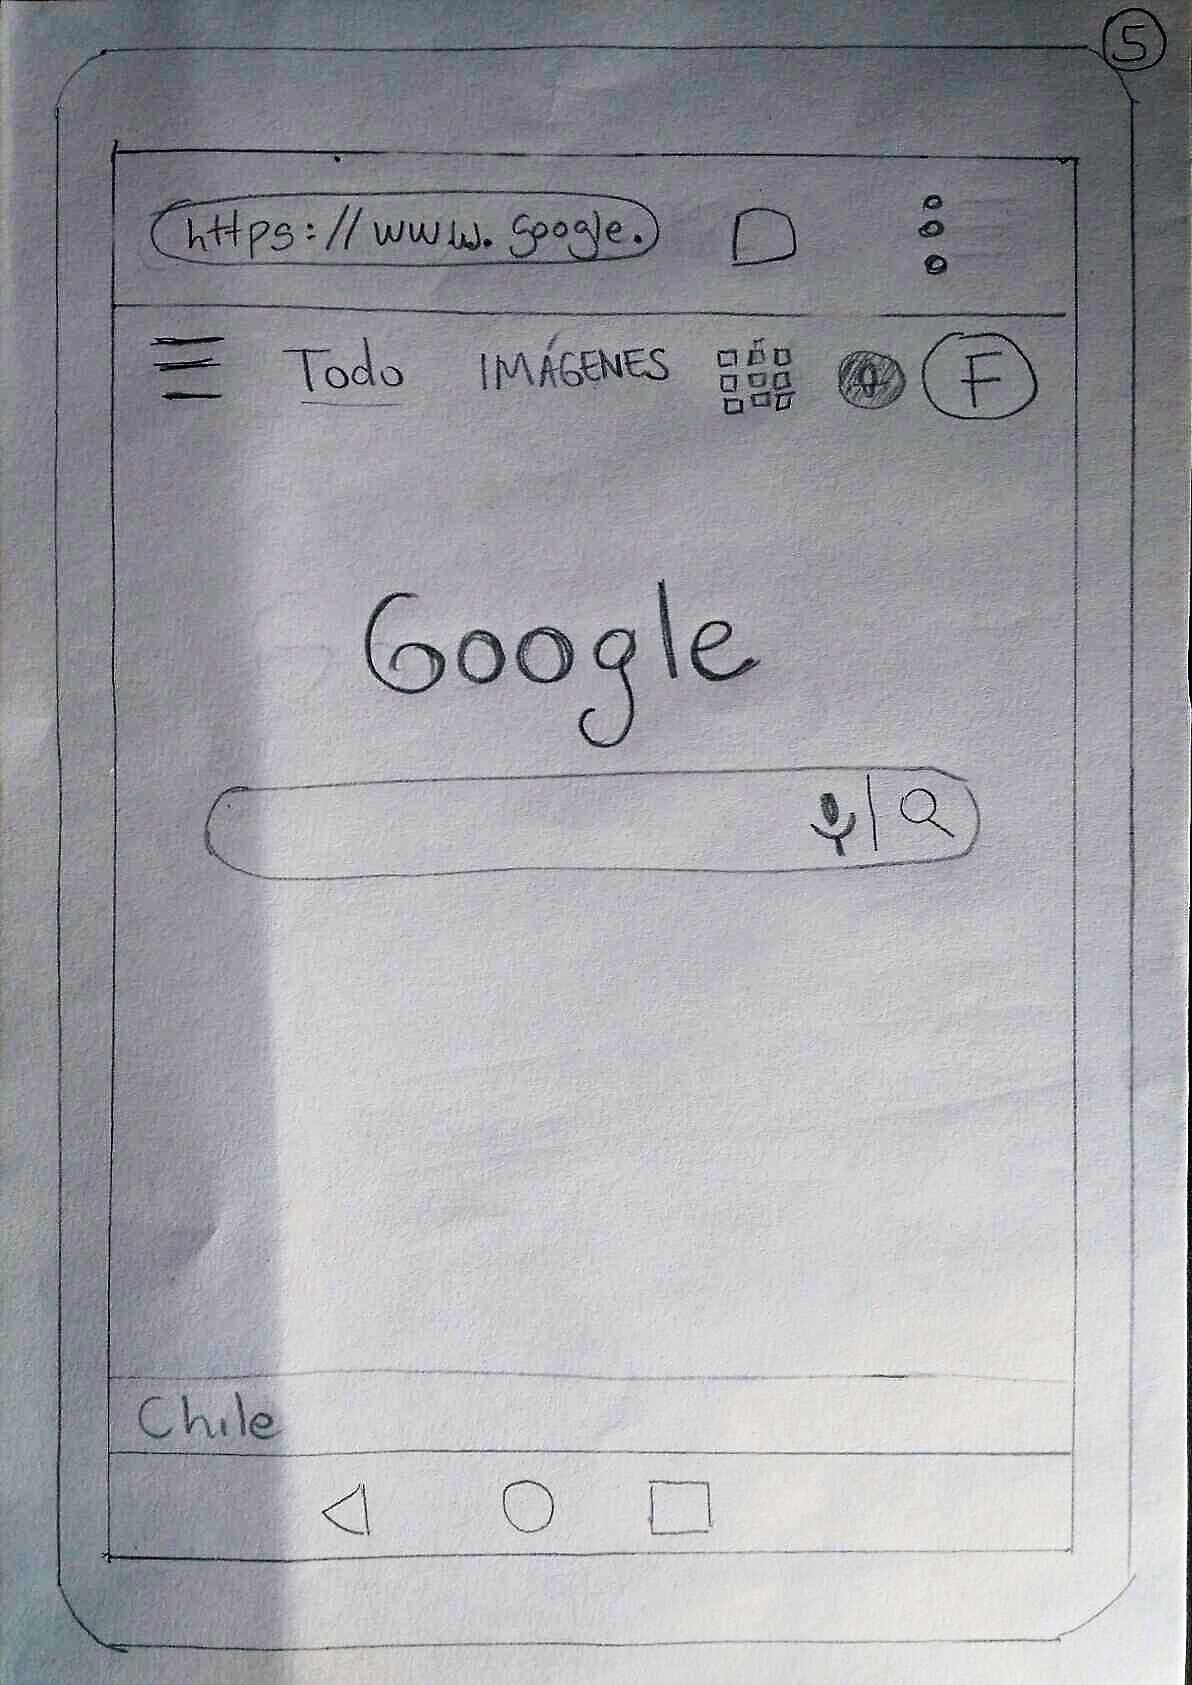 5
https://www.google.
Todo IMÁGENES 0 F
Google
Chile